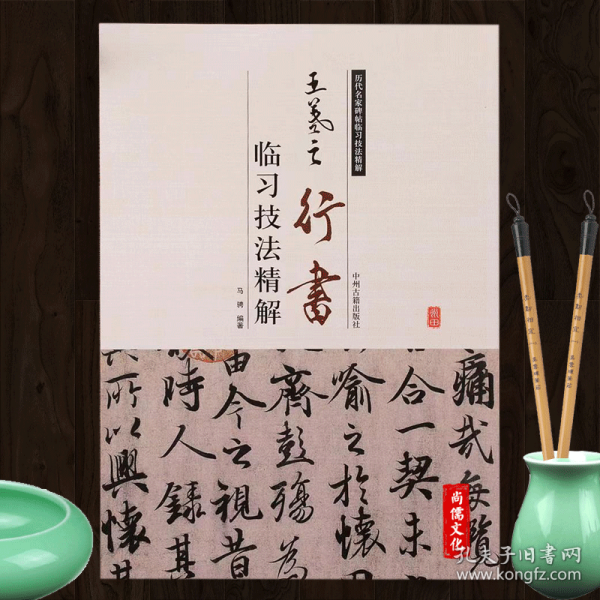 历代名家碑帖临习技法精解
王羲之
行書
临习技法精解
马骋 编著
中州古籍出版社
痛哉每攬
合一契未
喻之於懷
齊彭殤為
由今之視昔
時人錄其
所以興懷其
尚儒文化
孔夫子旧书网
www.kongfz.com